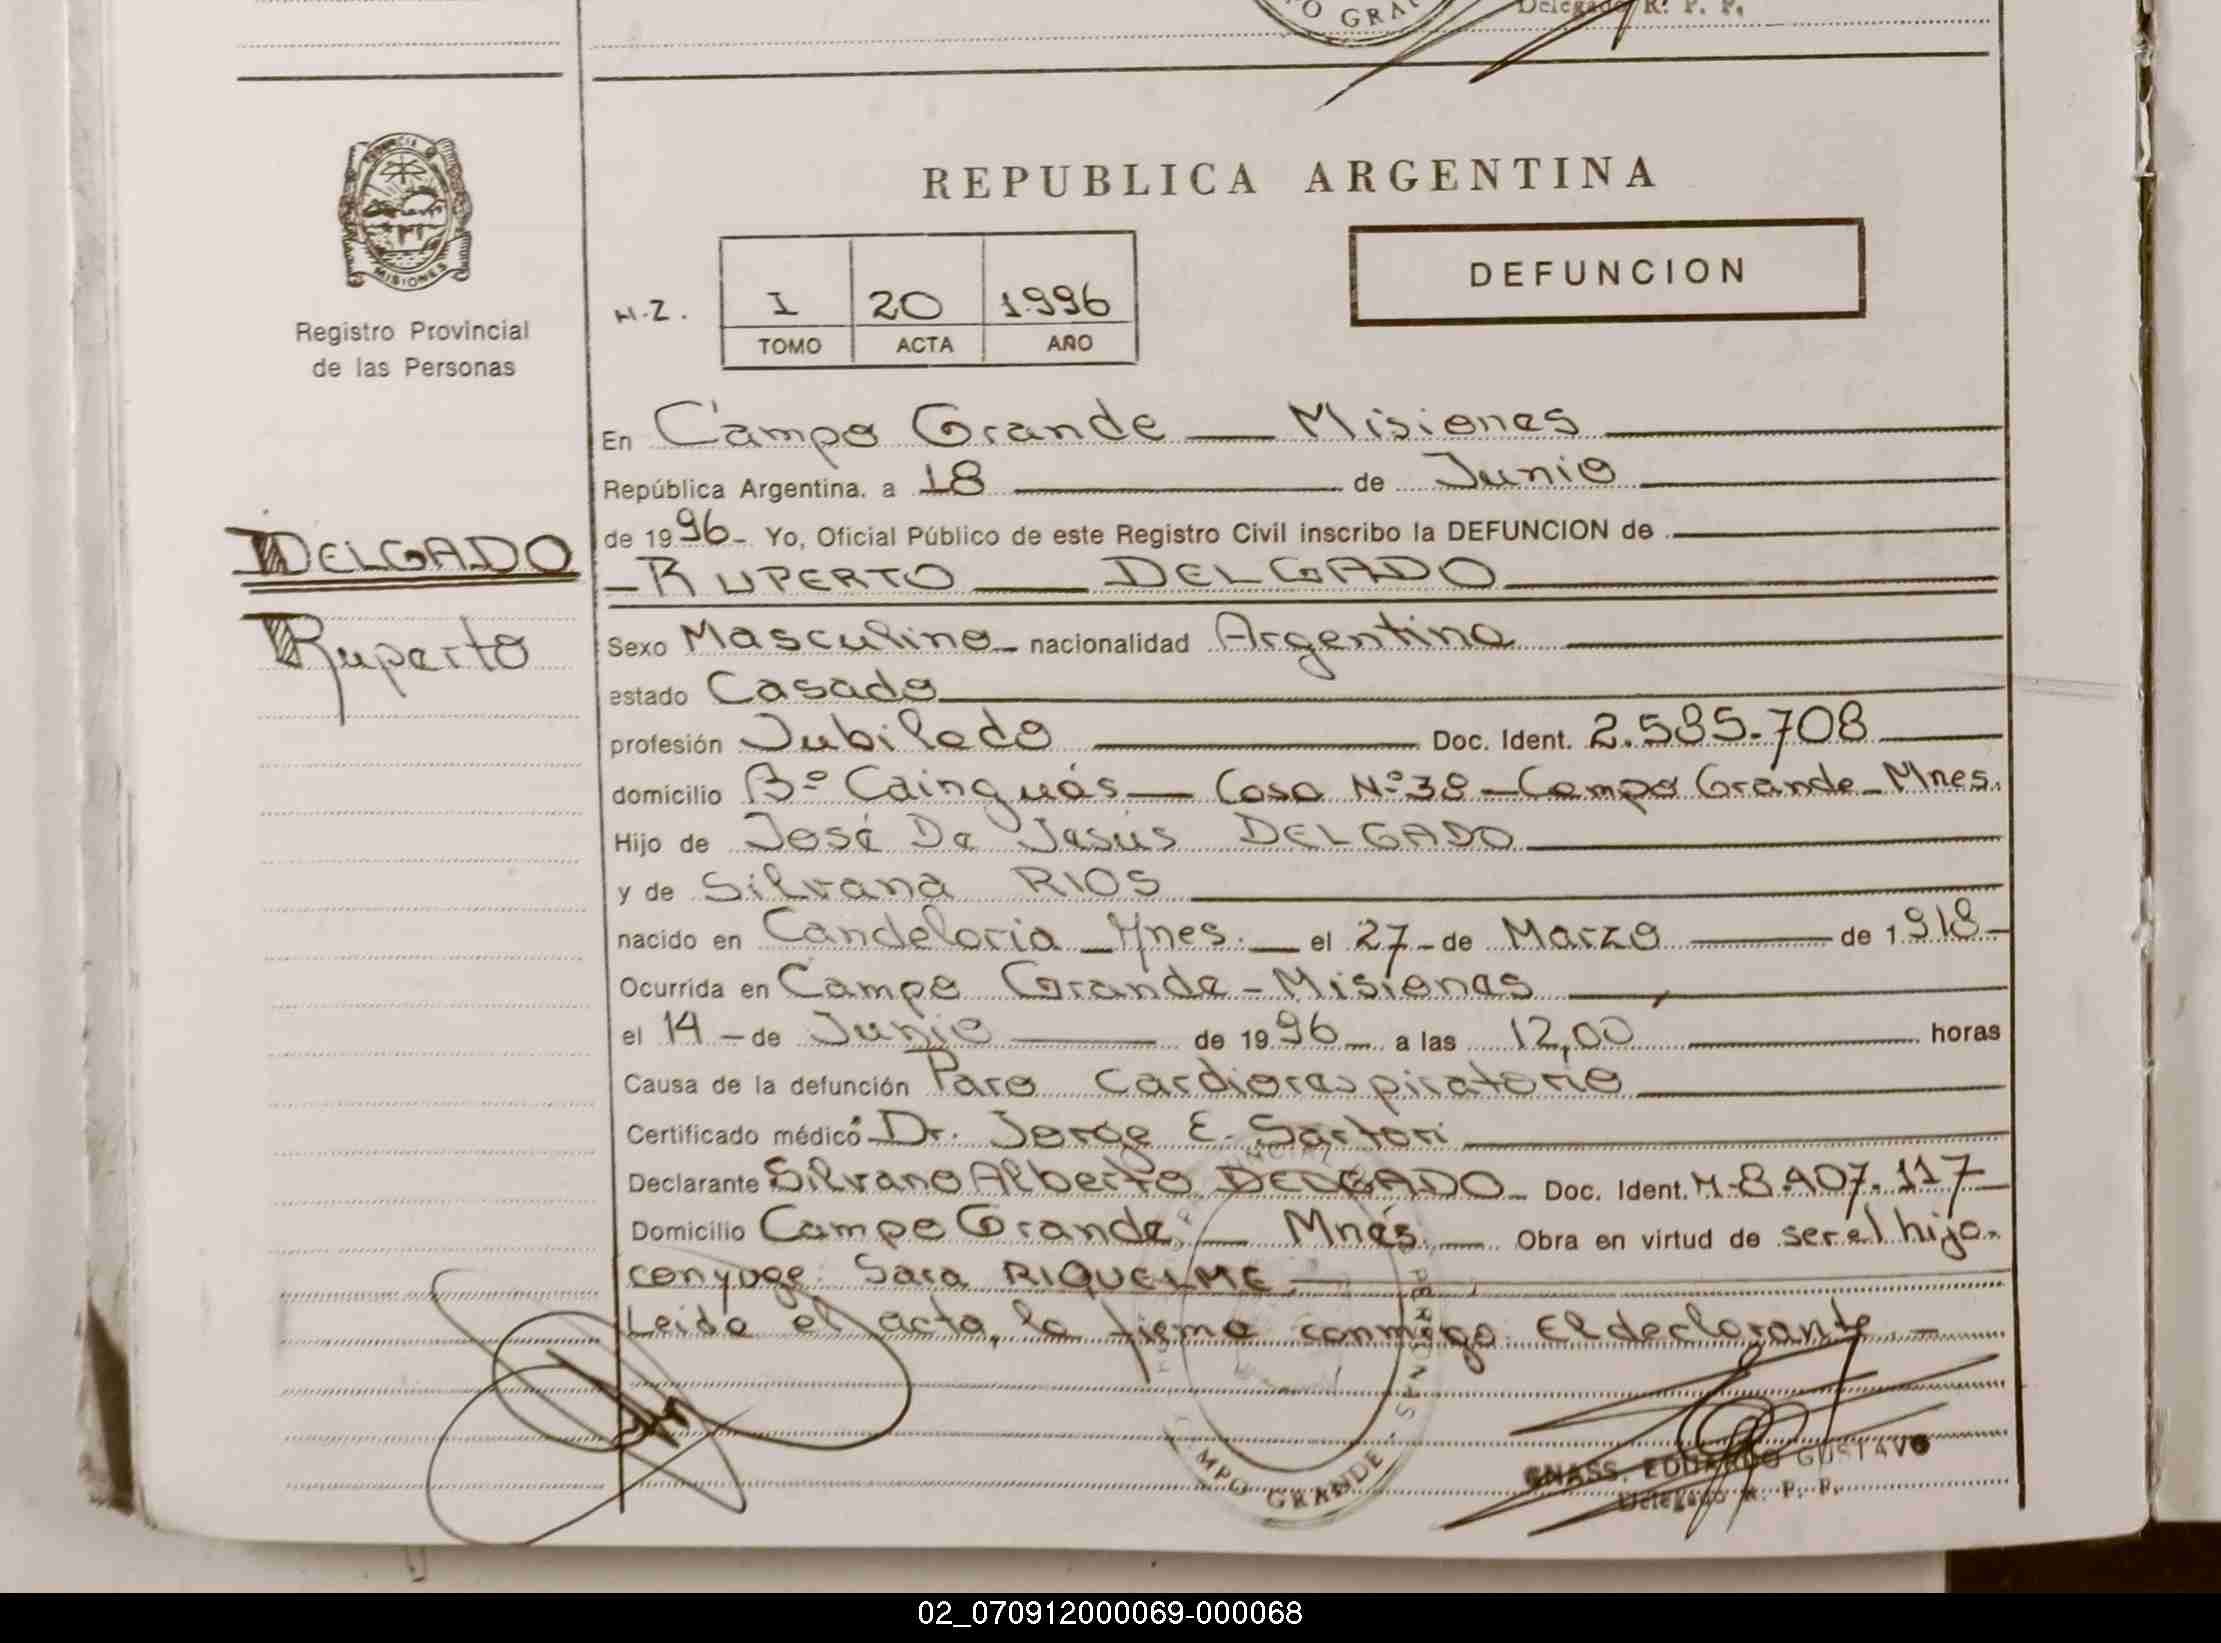 Delegado R. P. P.
O GRA
PROVINCIA
MISIONES
Registro Provincial
de las Personas
REPUBLICA ARGENTINA
DEFUNCION
I 20 1996
TOMO ACTA AÑO
En Campo Grande — Misiones
República Argentina, a 18 de Junio
de 1996- Yo, Oficial Público de este Registro Civil inscribo la DEFUNCION de
DELGADO
- RUPERTO — DELGADO
Ruperto
Sexo Masculino - nacionalidad Argentina
estado Casado
profesión Jubilado Doc. Ident. 2.585.708
domicilio Bº Cainguás — Casa Nº 38 - Campo Grande - Mnes.
Hijo de José De Jesús DELGADO
y de Silvana RIOS
nacido en Candelaria - Mnes. — el 27 - de Marzo — de 1918-
Ocurrida en Campo Grande - Misiones
el 14 - de Junio — de 1996 - a las 12,00 horas
Causa de la defunción Paro Cardiorespiratorio
Certificado médico Dr. Jorge E. Sartori
Declarante Silvano Alberto DELGADO - Doc. Ident. M-8.407.117
Domicilio Campo Grande, — Mnes. — Obra en virtud de ser el hijo.
conyuge: Sara RIQUELME.
Leida el acta, la firma conmigo El declarante. -
PERSONAS
CAMPO GRANDE
GNASS, EDUARDO GUSTAVO
Delegado R. P. P.
02_070912000069-000068